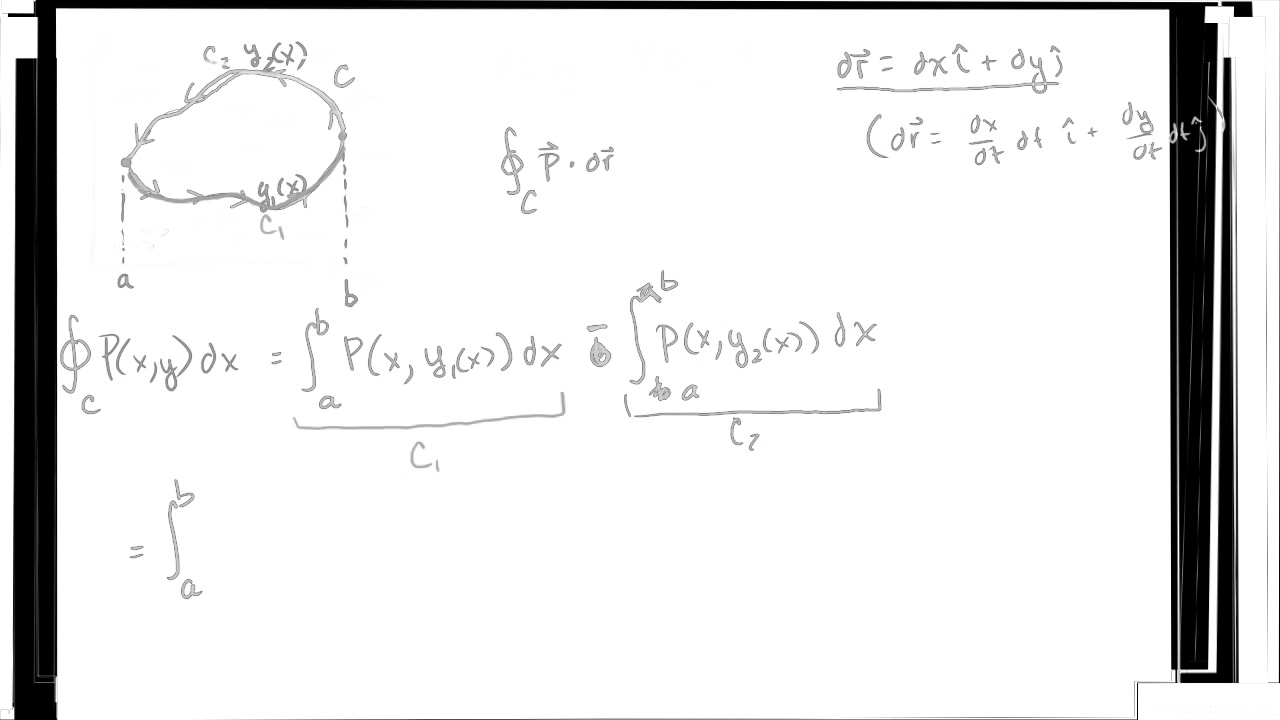 C₂ y₂(x)
C
y₁(x)
C₁
a
b
∮_C P⃗ · dr⃗
dr⃗ = dx î + dy ĵ
(dr⃗ = dx/dt dt î + dy/dt dt ĵ)
∮_C P(x,y) dx = ∫_a^b P(x, y₁(x)) dx - ∫_a^b P(x, y₂(x)) dx
C₁
C₂
= ∫_a^b